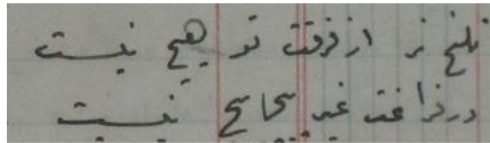 تلخ تر از فرقت تو هیچ نیست
در فراغت غیر پیچاپیچ نیست